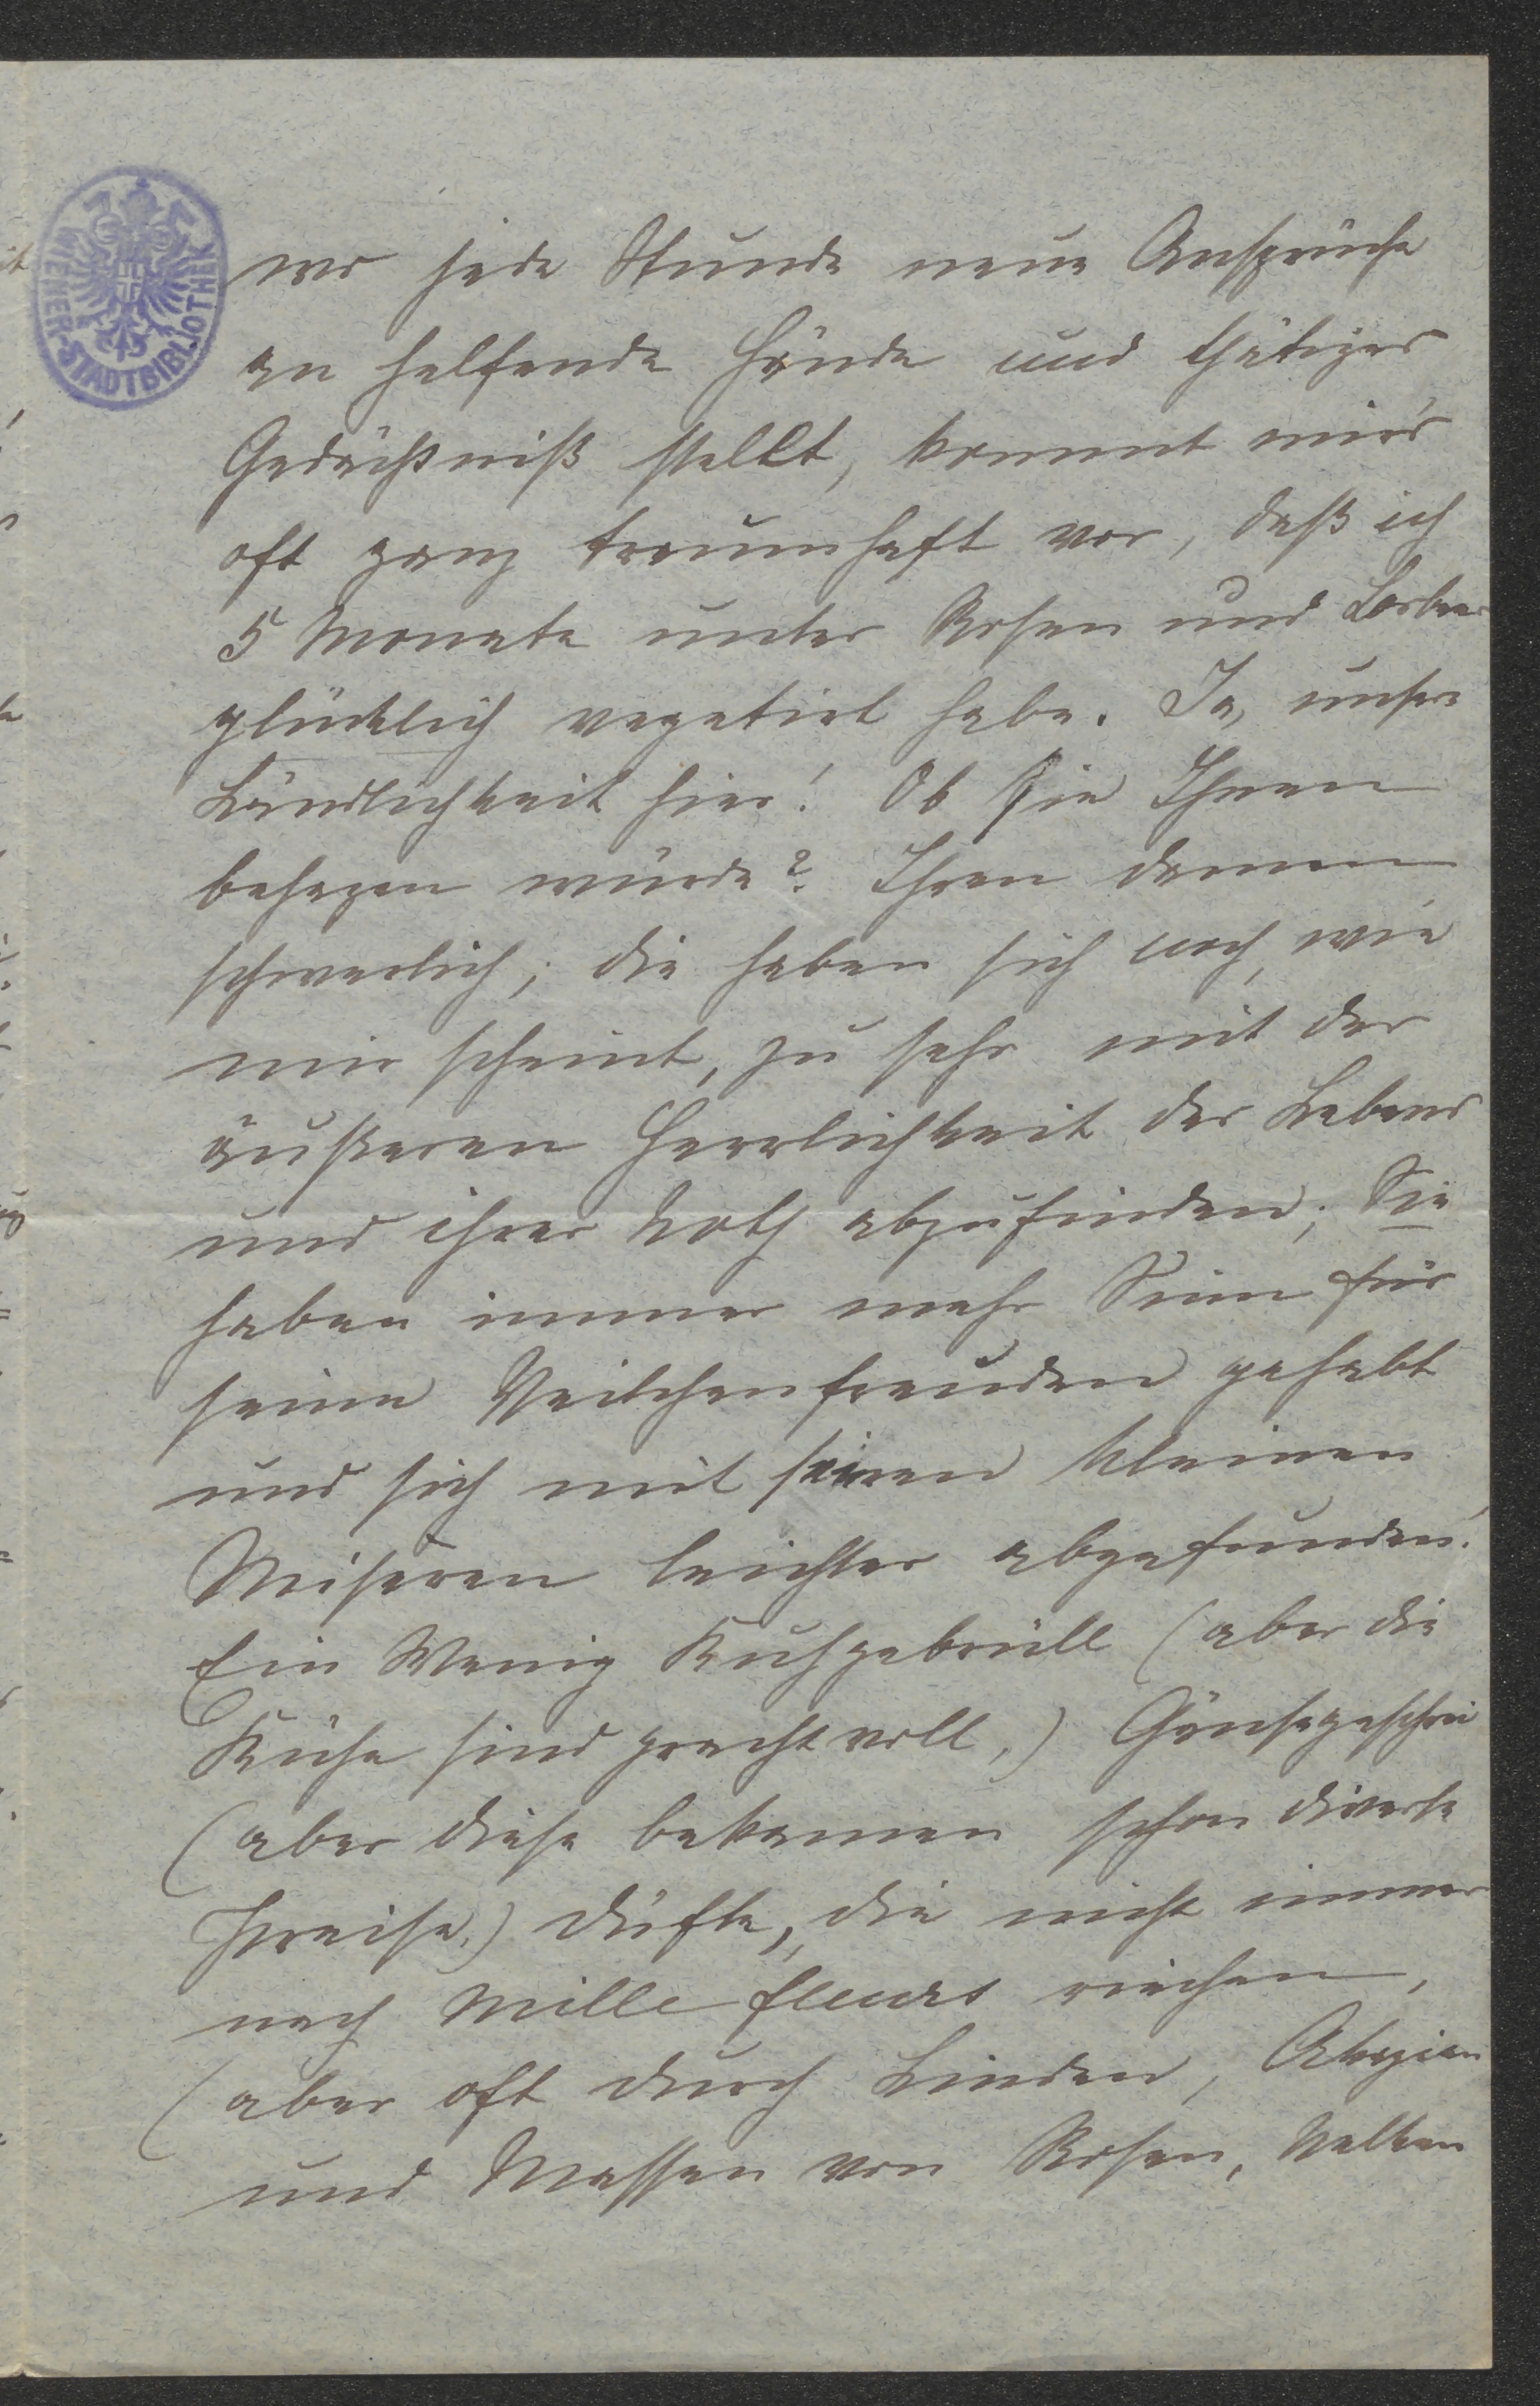 WIENER-STADTBIBLIOTHEK
wo jede Stunde neue Ansprüche
an helfende Hände und thätiges
Gedächtniß stellt, kommt mir's
oft ganz traumhaft vor, daß ich
5 Monate unter Rosen und Lorbeer
glücklich vegetirt habe. Ja, unsere
Ländlichkeit hier! Ob sie Ihnen
behagen würde? Ihren Damen
schwerlich; die haben sich noch, wie
mir scheint, zu sehr mit der
äußeren Herrlichkeit des Lebens
und ihrer Noth abzufinden; Sie
haben immer mehr Sinn für
seine Veilchenfreuden gehabt
und sich mit seinen kleinen
Miseren leichter abgefunden.
Ein Wenig Kuhgebrüll (aber die
Kühe sind prachtvoll,) Gänsegeschrei
(aber diese bekamen schon diverse
Preise,) Düfte, die nicht immer
nach Mille fleurs riechen,
(aber oft durch Linden, Akazien
und Massen von Rosen, Nelken